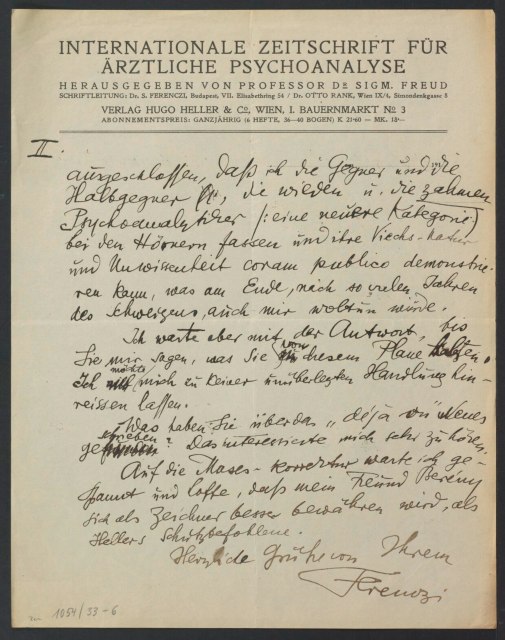 INTERNATIONALE ZEITSCHRIFT FÜR
ÄRZTLICHE PSYCHOANALYSE
HERAUSGEGEBEN VON PROFESSOR DR SIGM. FREUD
SCHRIFTLEITUNG: Dr. S. FERENCZI, Budapest, VII. Elisabethring 54 / Dr. OTTO RANK, Wien IX/4, Simondenkgasse 8
VERLAG HUGO HELLER & Co, WIEN, I. BAUERNMARKT No 3
ABONNEMENTSPREIS: GANZJÄHRIG (6 HEFTE, 36—40 BOGEN) K 21·60 — MK. 18·—
II.
ausgeschlossen, daß ich die Gegner und die
Halbgegner, die wilden u. die zahmen
Psychoanalytiker /: eine neuere Kategorie)
bei den Hörnern fassen und ihre Viechs-natur
und Unwissenheit coram publico demonstrie-
ren kann, was am Ende, nach so vielen Jahren
des Schweigens, auch mir wohltun würde.
Ich warte aber mit der Antwort, bis
Sie mir sagen, was Sie von diesem Plane halten.
Ich möchte mich zu keiner unüberlegten Handlung hin-
reissen lassen.
Was haben Sie über das „déjà vu" Neues
geschrieben? Das interessierte mich sehr zu hören.
Auf die Moses-Korrektur warte ich ge-
spannt und hoffe, daß mein Freund Berény
sich als Zeichner besser bewähren wird, als
Hellers Schutzbefohlene.
Herzliche Grüße von Ihrem
Ferenczi
1054/33-6